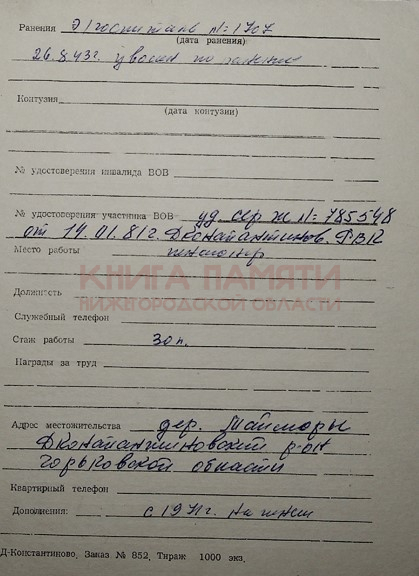 Ранения Э/госпиталь №=1707
(дата ранения)
26.8.43г. уволен по ранению
Контузия
(дата контузии)
№ удостоверения инвалида ВОВ
№ удостоверения участника ВОВ уд. сер Ж №=785548
от 14.01.81г. Дконстантинов. РВК
Место работы пенсионер
КНИГА ПАМЯТИ
НИЖЕГОРОДСКОЙ ОБЛАСТИ
Должность
Служебный телефон
Стаж работы 30 л.
Награды за труд
Адрес местожительства дер. Майморы
Дконстантиновский р-он
Горьковской области
Квартирный телефон
Дополнения: с 1971г. на пенсии
Д-Константиново, Заказ № 852, Тираж 1000 экз.